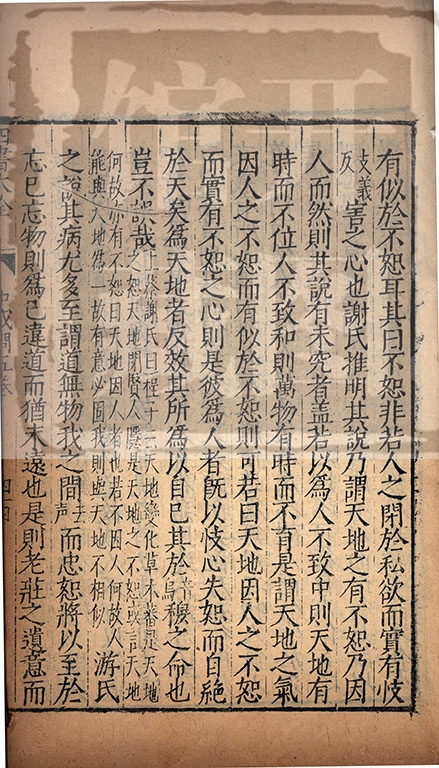 有似於不恕耳其曰不恕非若人之閉於私欲而實有忮
支義反
害之心也謝氏推明其說乃謂天地之有不恕乃因
人而然則其說有未究者蓋若以為人不致中則天地有
時而不位人不致和則萬物有時而不育是謂天地之氣
因人之不恕而有似於不恕則可若曰天地因人之不恕
而實有不恕之心則是彼為人者旣以忮心失恕而自絕
於天矣為天地者反效其所為以自已其於
音烏
穆之命也
豈不誤哉
上蔡謝氏曰程子云天地變化草木蕃是天地
之恕天地閉賢人隱是天地之不恕或言天地
何故亦有不恕曰天地因人者也若不因人何故人
能與天地為一故有意必固我則與天地不相似
游氏
之說其病尤多至謂道無物我之間
去聲
而忠恕將以至於
忘己忘物則為已違道而猶未遠也是則老莊之遺意而
四書大全
中庸或問
四四